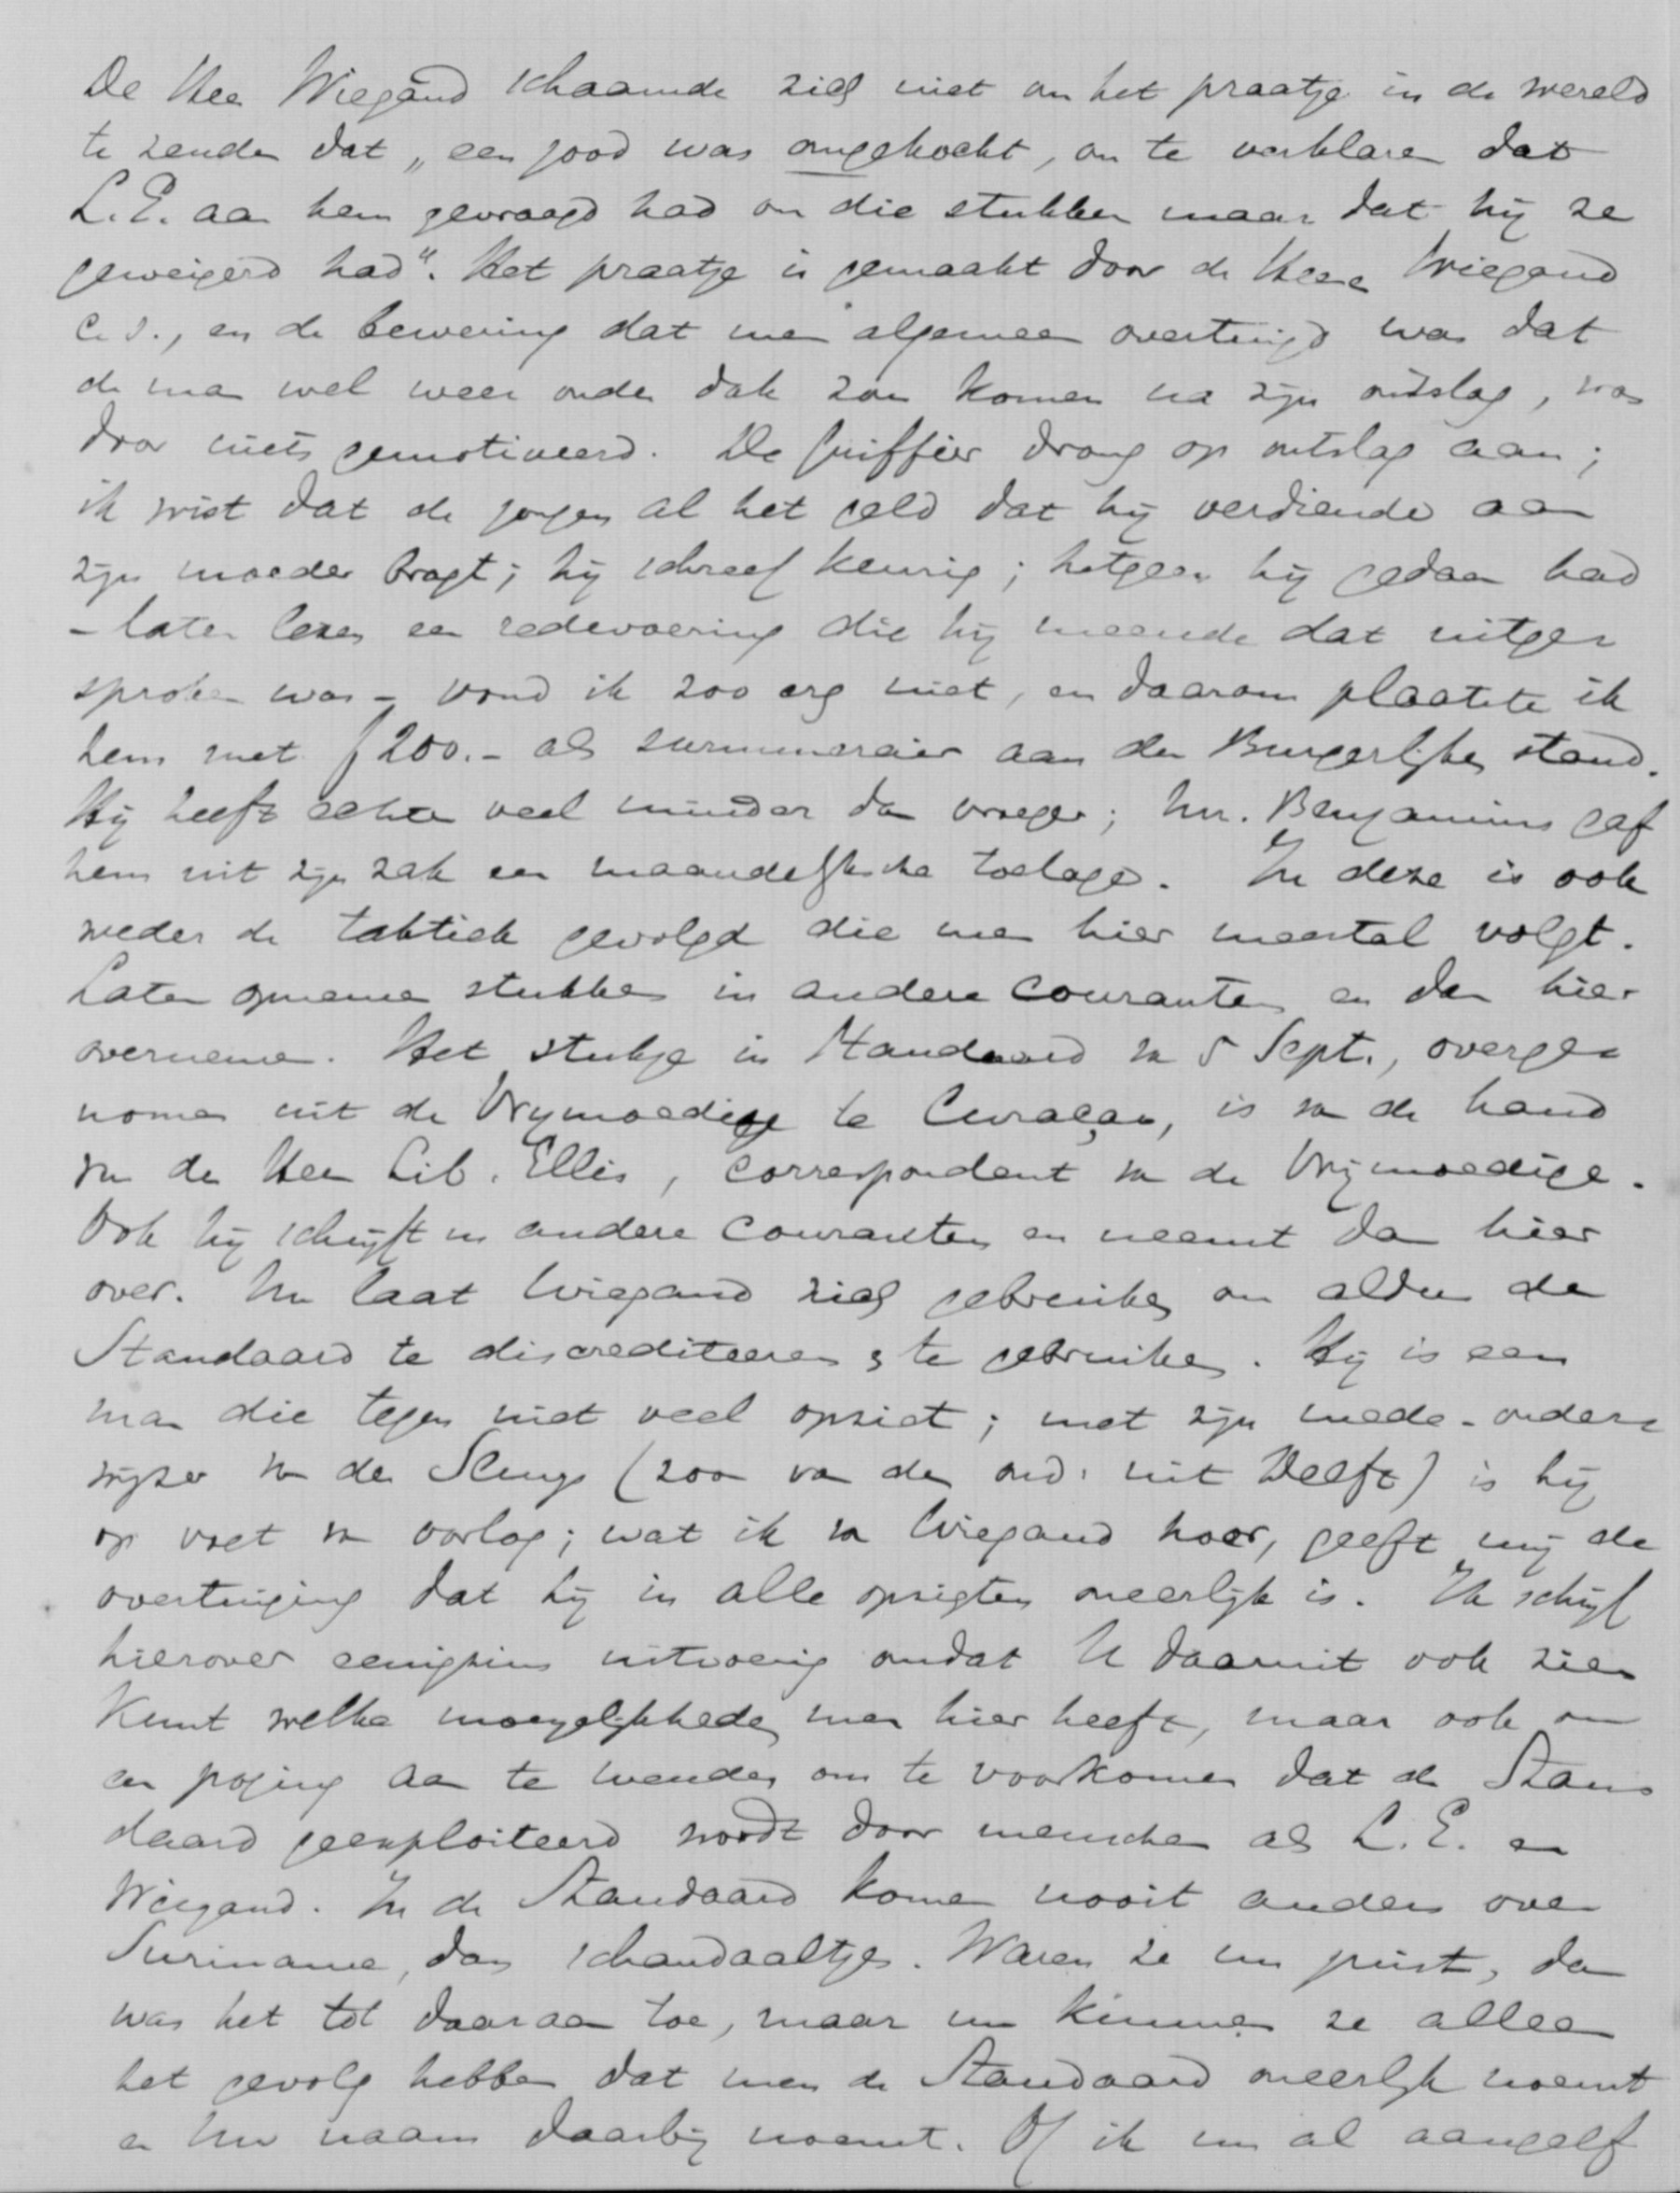 De Heer Wiegand schaamde zich niet om het praatje in de wereld
te zenden dat „een jood was omgekocht, om te verklaren dat
L.E. aan hem gevraagd had om die stukken maar dat hij ze
geweigerd had". Het praatje is gemaakt door de Heeren Wiegand
c.s., en de bewering dat men algemeen overtuigd was dat
de man wel weer onder dak zou komen na zijn ontslag, was
door niets gemotiveerd. De griffier drong op ontslag aan;
ik wist dat de jongen al het geld dat hij verdiende aan
zijn moeder bragt; hij schreef keurig; hetgeen hij gedaan had
- laten lezen een redevoering die hij meende dat uitge-
sproken was - vond ik zoo erg niet, en daarom plaatste ik
hem met f 200.- als surnumerair aan den Burgerlijken stand.
Hij heeft echter veel minder dan vroeger; Mr. Benjamins gaf
hem uit zijn zak een maandelijksche toelage. In deze is ook
weder de taktiek gevolgd die men hier meestal volgt.
Laten opnemen stukken in andere couranten en dan hier
overnemen. Het stukje in Standaard van 5 Sept., overge-
nomen uit de Vrijmoedige te Curaçao, is van de hand
van den Heer Lib. Ellis, correspondent van de Vrijmoedige.
Ook hij schrijft in andere couranten en neemt dan hier
over. Nu laat Wiegand zich gebruiken om aldus de
Standaard te discrediteeren & te gebruiken. Hij is een
man die tegen niet veel opziet; met zijn mede-onder-
wijzer van der Sleuys (zoon van den ond. uit Delft) is hij
op voet van oorlog; wat ik van Wiegand hoor, geeft mij de
overtuiging dat hij in alle opzigten oneerlijk is. Ik schrijf
hierover eenigzins uitvoerig omdat U daaruit ook zien
kunt welke moeyelijkheden men hier heeft, maar ook om
een poging aan te wenden om te voorkomen dat de Stan-
daard geexploiteerd wordt door menschen als L.E. en
Wiegand. In de Standaard komen nooit anders over
Suriname, dan schandaaltjes. Waren ze nu juist, dan
was het tot daaraan toe, maar nu kunnen ze alleen
het gevolg hebben dat men de Standaard oneerlijk noemt
en Uw naam daarbij noemt. Of ik nu al aangeef